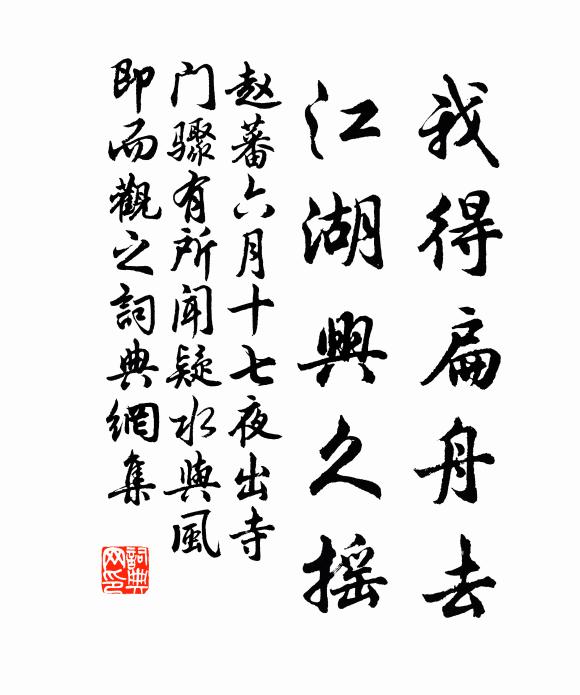 我得扁舟去
江湖興久摇
赵蕃六月十七夜出寺
门骤有所闻疑水與風
即而觀之詞典網集
詞典网印